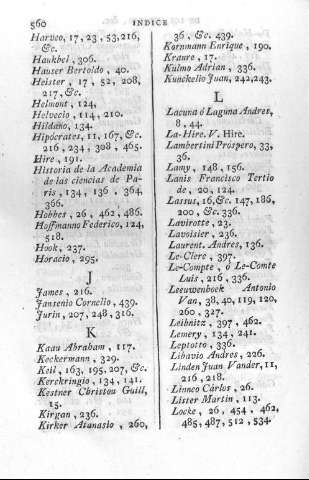 560 INDICE
Harveo, 17, 23, 53, 216,
&c.
Haukbel, 306.
Hauser Bertoldo, 40.
Heister, 17, 52, 208,
217, &c.
Helmont, 124,
Helvecio, 114, 210.
Hildano, 134.
Hipócrates, 11, 167, &c.
216, 234, 308, 465.
Hire, 191.
Historia de la Academia
de las ciencias de Pa-
ris, 134, 136, 364,
366.
Hobbes, 26, 462, 486.
Hoffmanno Federico, 124,
518.
Hook, 237.
Horacio, 295.
J
James, 216.
Jansenio Cornelio, 439.
Jurin, 207, 248, 316.
K
Kaau Abraham, 117.
Keckermann, 329.
Keil, 163, 195, 207, &c.
Kerckringio, 134, 141.
Kestner Christou Guill,
15.
Kirgan, 236.
Kirker Atanasio, 260,
36, &c. 439.
Kornmann Enrique, 190.
Kraure, 17.
Kulmo Adrian, 336.
Kunckelio Juan, 242, 243.
L
Lacuna ó Laguna Andres,
8, 44.
La-Hire. V. Hire.
Lambertini Próspero, 33,
36.
Lamy, 148, 156.
Lanis Francisco Tertio
de, 20, 124.
Lassus, 16, &c. 147, 186,
200, &c. 336.
Lavirotte, 23.
Lavoisier, 236.
Laurent. Andres, 136.
Le-Clerc, 397.
Le-Compte, ó Le-Comte
Luis, 216, 336.
Leeuwenboek Antonio
Van, 38, 40, 119, 120,
260, 327.
Leibnitz, 397, 462.
Lemery, 134, 241.
Leptotto, 336.
Libavio Andres, 226.
Linden Juan Vander, 11,
216, 218.
Linneo Cárlos, 26.
Lister Martin, 113.
Locke, 26, 454, 462,
485, 487, 512, 534.